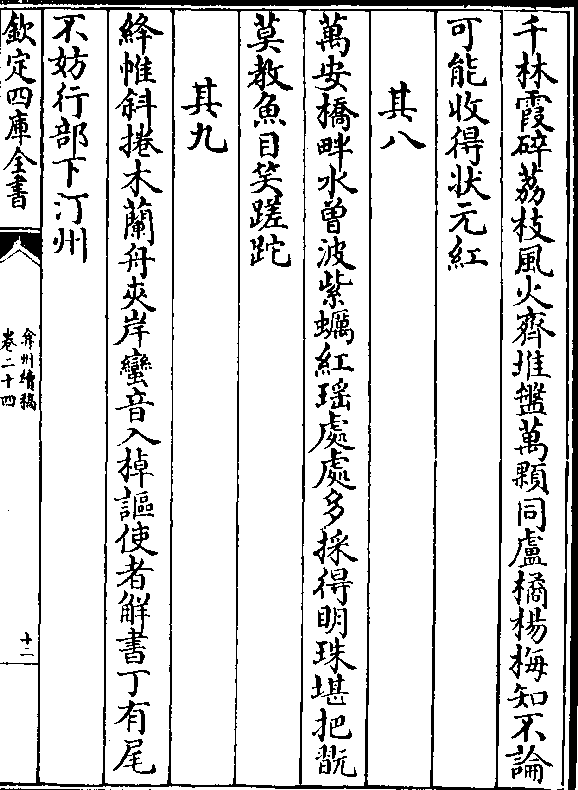 千林霞碎荔枝風火齊堆盤萬顆同盧橘楊梅知不論
可能收得狀元紅
其八
萬安橋畔水曾波紫蠣紅瑤處處多採得明珠堪把翫
莫教魚目笑蹉跎
其九
絳帷斜捲木蘭舟夾岸蠻音入棹謳使者觧書丁有尾
不妨行部下汀州
欽定四庫全書
弇州續稿
卷二十四
十二